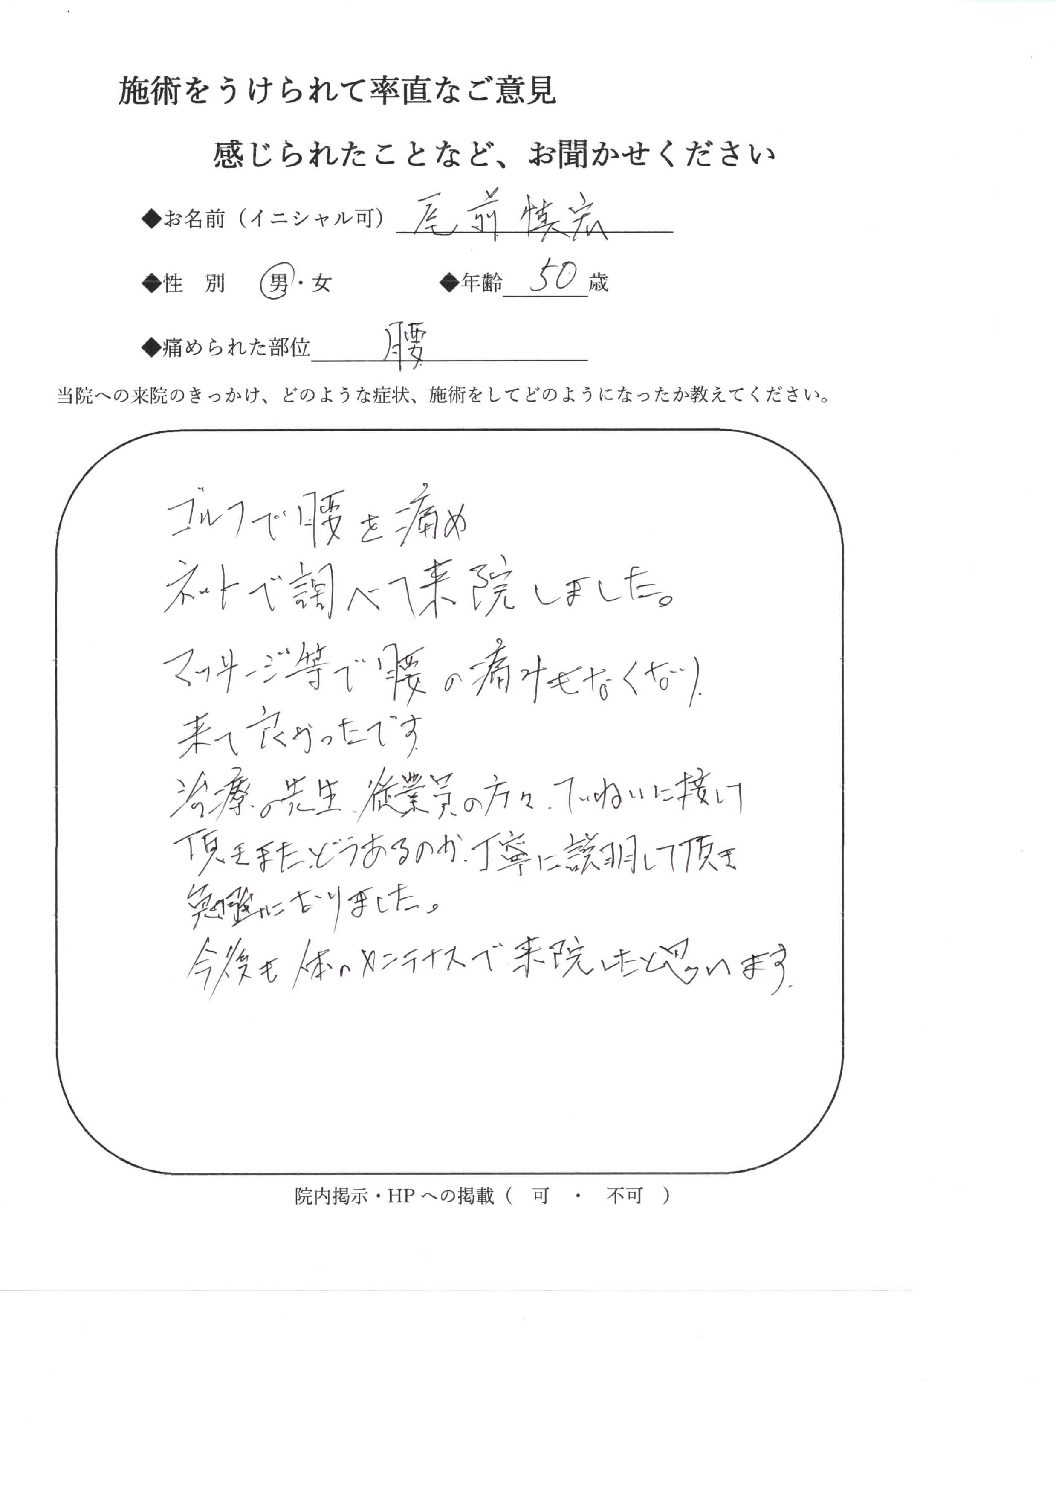 施術をうけられて率直なご意見
感じられたことなど、お聞かせください
◆お名前（イニシャル可） 尾前慎宏
◆性 別 男・女 ◆年齢 50 歳
◆痛められた部位 腰
当院への来院のきっかけ、どのような症状、施術をしてどのようになったか教えてください。
ゴルフで腰を痛め
ネットで調べて来院しました。
マッサージ等で腰の痛みもなくなり、
来て良かったです
治療の先生、従業員の方々、ていねいに接して
頂きまた、どうあるのか、丁寧に説明して頂き
勉強になりました。
今後も体のメンテナスで来院したと思います。
院内掲示・HPへの掲載（ 可 ・ 不可 ）